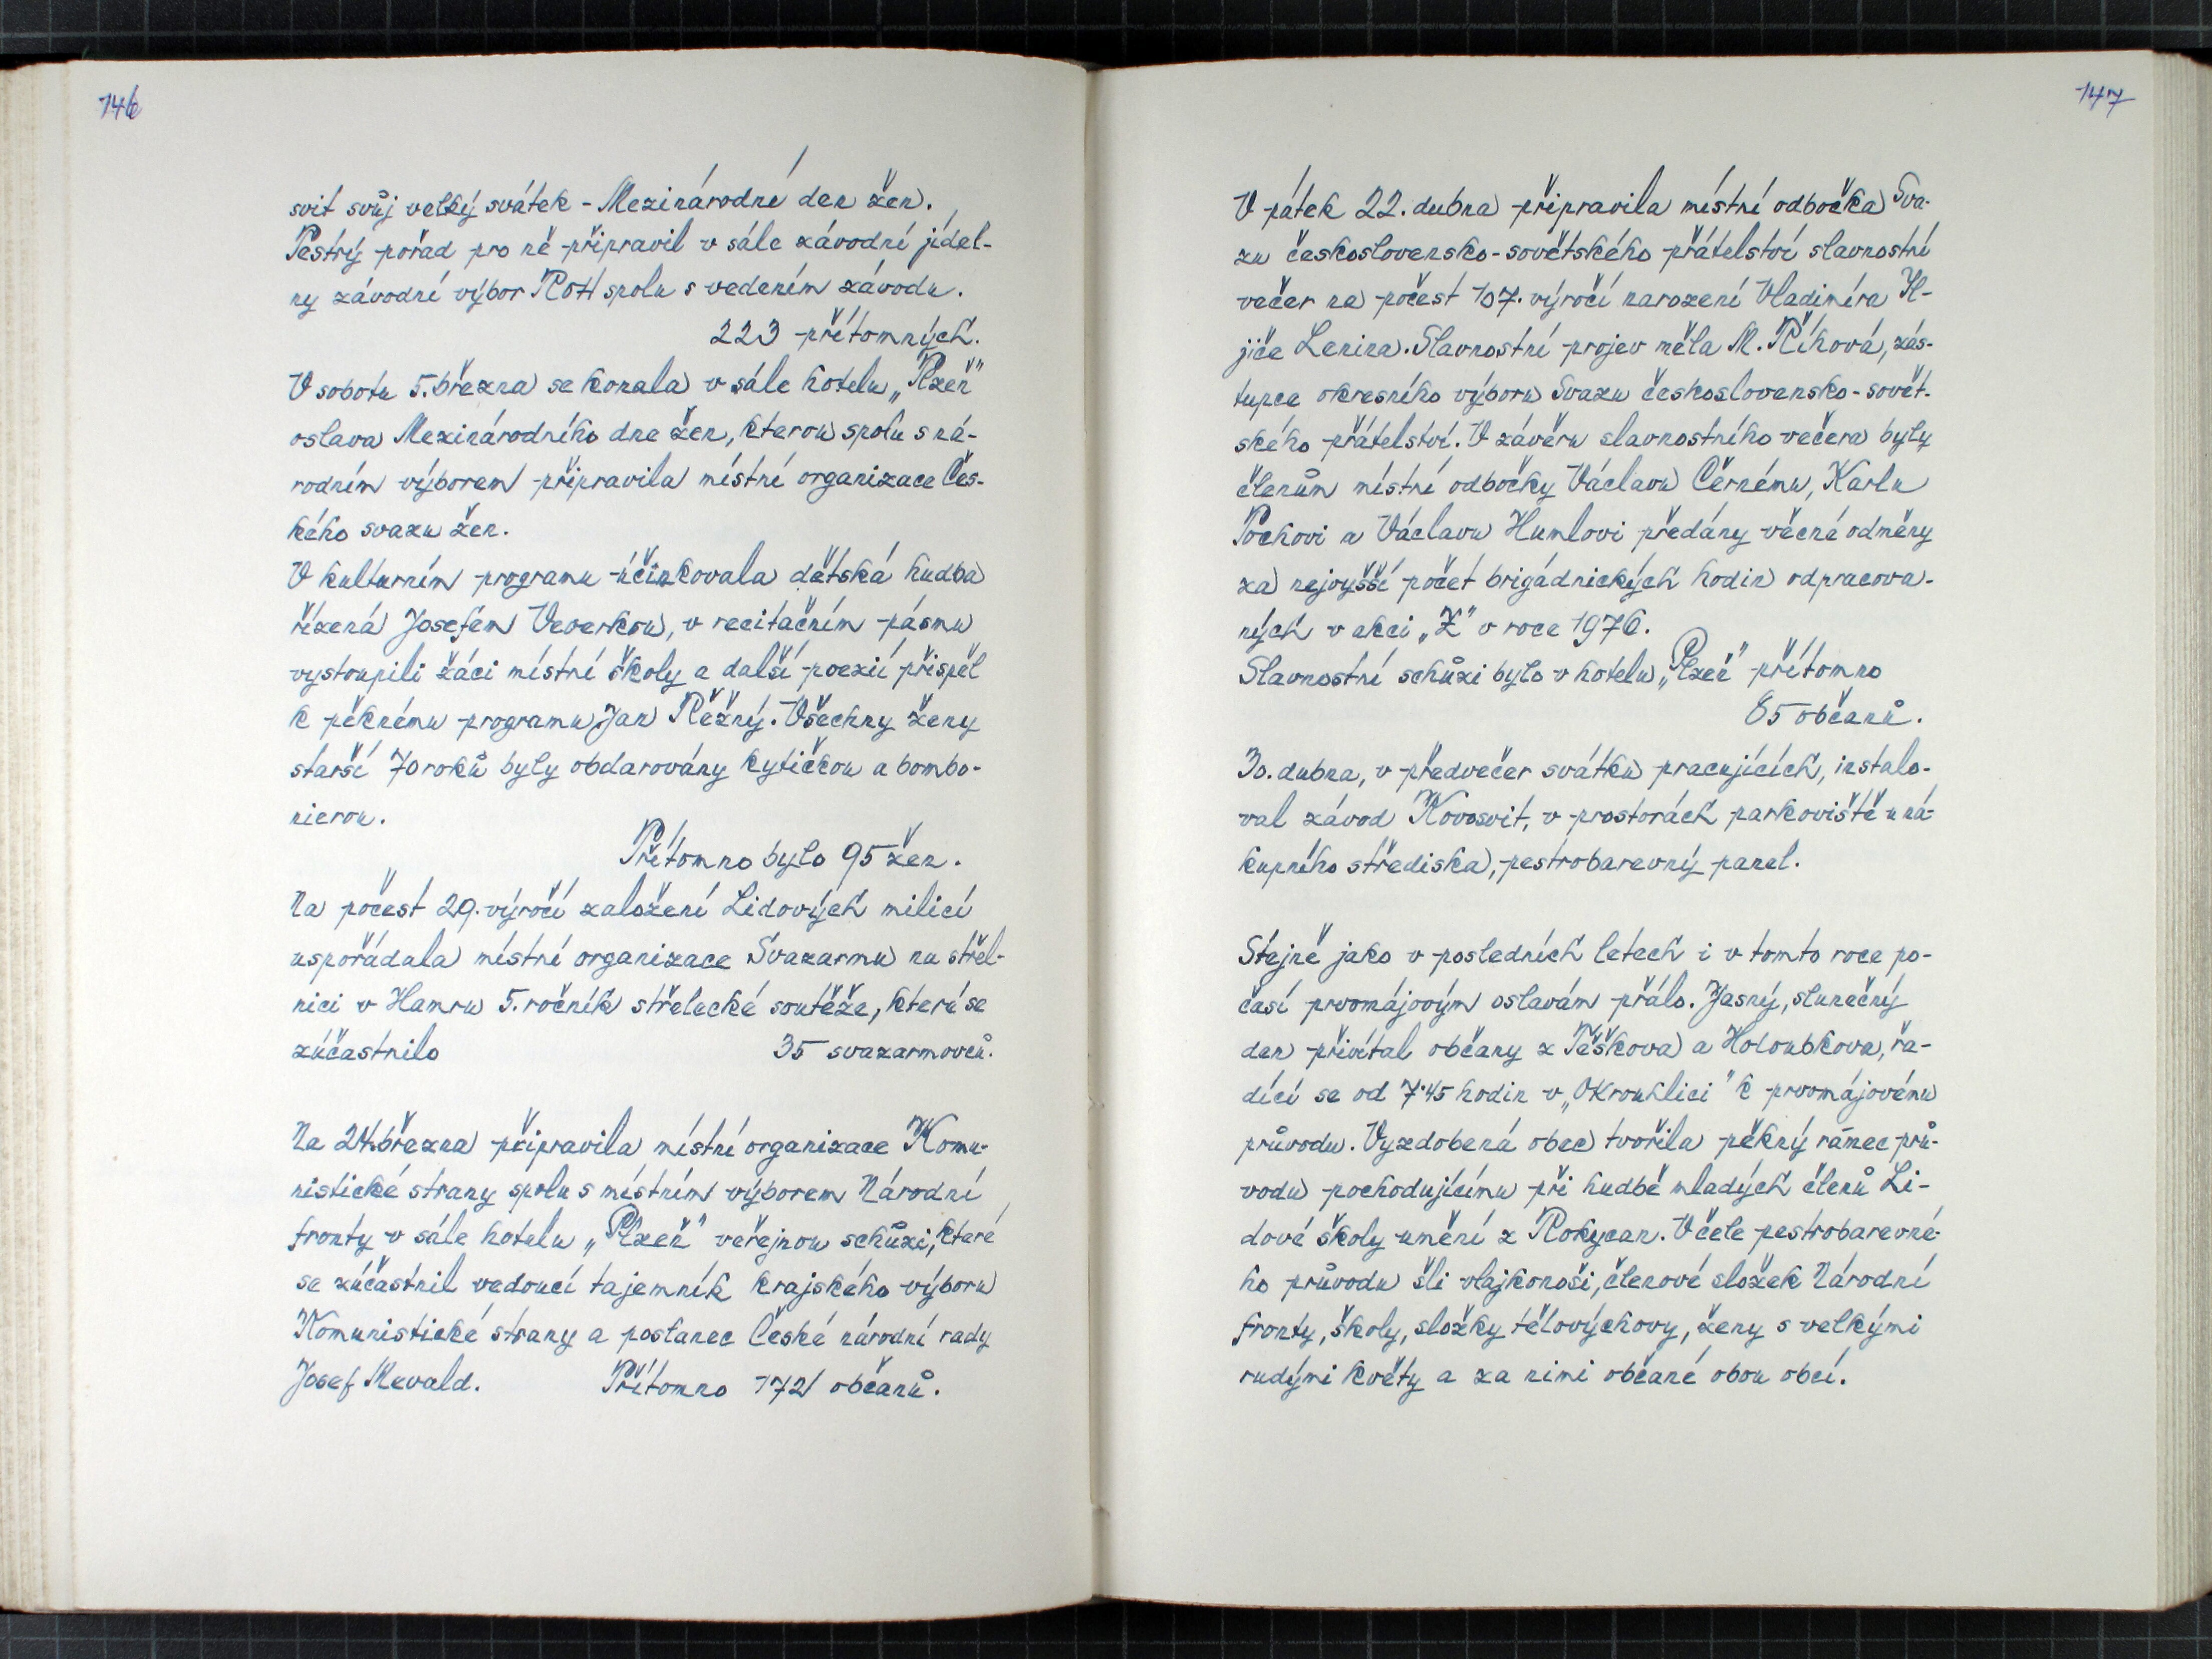 146
svit svůj velký svátek - Mezinárodní den žen.
Pestrý pořad pro ně připravil v sále závodní jídel-
ny závodní výbor ROH spolu s vedením závodu.
223 přítomných.
V sobotu 5. března se konala v sále hotelu „Plzeň"
oslava Mezinárodního dne žen, kterou spolu s ná-
rodním výborem připravila místní organizace Čes-
kého svazu žen.
V kulturním programu účinkovala dětská hudba
řízená Josefem Veverkou, v recitačním pásmu
vystoupili žáci místní školy a další poezií přispěl
k pěknému programu Jan Řežný. Všechny ženy
starší 70 roků byly obdarovány kytičkou a bombo-
nierou.
Přítomno bylo 95 žen.
Na počest 29. výročí založení Lidových milicí
uspořádala místní organizace Svazarmu na střel-
nici v Hamru 5. ročník střelecké soutěže, které se
zúčastnilo 35 svazarmovců.
Na 24. března připravila místní organizace Komu-
nistické strany spolu s místním výborem Národní
fronty v sále hotelu „Plzeň" veřejnou schůzi, které
se zúčastnil vedoucí tajemník krajského výboru
Komunistické strany a poslanec České národní rady
Josef Mevald. Přítomno 172 občanů.
147
V pátek 22. dubna připravila místní odbočka Sva-
zu československo-sovětského přátelství slavnostní
večer na počest 107. výročí narození Vladimíra Il-
jiče Lenina. Slavnostní projev měla M. Říhová, zás-
tupce okresního výboru Svazu československo-sovět-
ského přátelství. V závěru slavnostního večera byly
členům místní odbočky Václavu Černému, Karlu
Pochovi a Václavu Humlovi předány věcné odměny
za nejvyšší počet brigádnických hodin odpracova-
ných v akci „Z" v roce 1976.
Slavnostní schůzi bylo v hotelu „Plzeň" přítomno
85 občanů.
30. dubna, v předvečer svátku pracujících, instalo-
val závod Kovosvit, v prostorách parkoviště u ná-
kupního střediska, pestrobarevný panel.
Stejně jako v posledních letech i v tomto roce po-
časí prvomájovým oslavám přálo. Jasný, slunečný
den přivítal občany z Těškova a Holoubkova, řa-
dící se od 7.45 hodin v „Okrouhlici" k prvomájovému
průvodu. Vyzdobená obec tvořila pěkný rámec prů-
vodu pochodujícímu při hudbě mladých členů Li-
dové školy umění z Rokycan. V čele pestrobarevné-
ho průvodu šli vlajkonoši, členové složek Národní
fronty, školy, složky tělovýchovy, ženy s velkými
rudými květy a za nimi občané obou obcí.